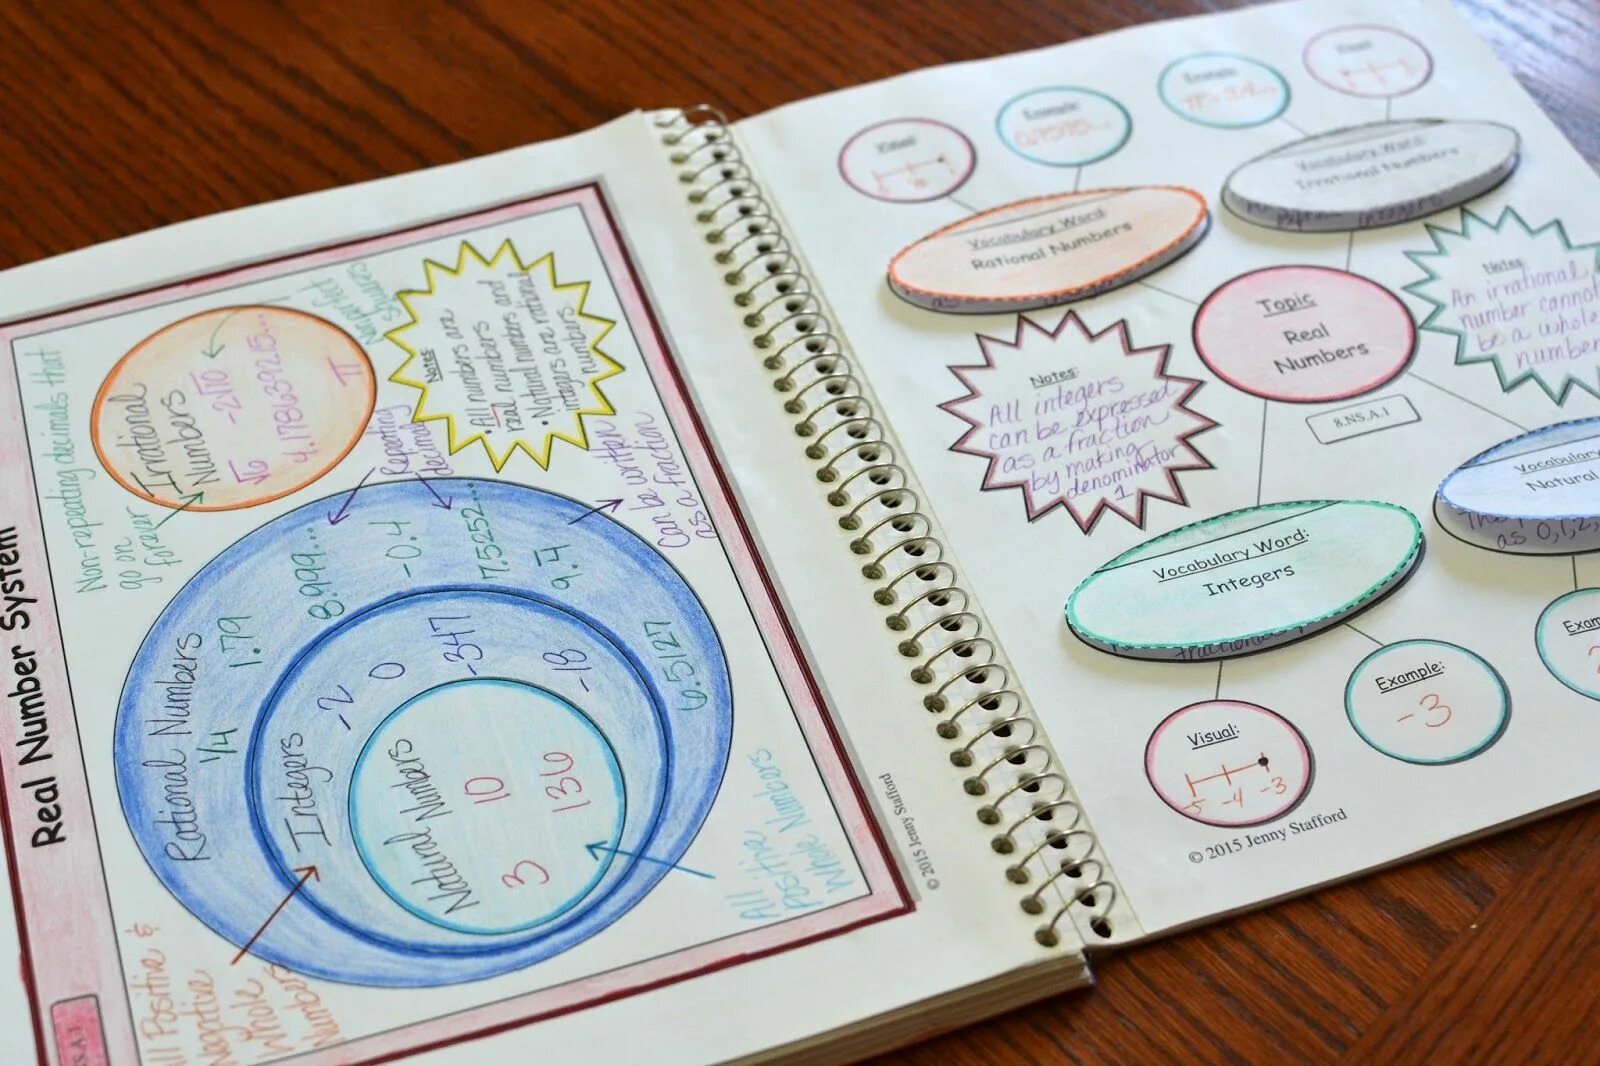 Real Number System
Non-repeating decimals that
go on
forever
Irrational
Numbers
√6 -2√10
4.178639215...
π
Non perfect
Squares
Notes:
• All numbers are
real numbers
• Natural numbers and
integers are rational
numbers.
Repeating
decimals
can be written
as a fraction
Rational Numbers
1/4 1.79
8.999...
-0.4
7.5252...
9.4
6.527
Integers
-2 0 -347 -18
Natural Numbers
3 10 136
All Positive
Whole Numbers
Positive &
Negative
Whole
Numbers
© 2015 Jenny Stafford
Visual
Example
Example
Vocabulary Word:
Rational Numbers
as
Vocabulary Word:
Irrational Numbers
integers
Topic
Real
Numbers
8.NS.A.1
Notes:
All integers
can be expressed
as a fraction
by making
denominator
1
Notes:
An irrational
number cannot
be a whole
number
Vocabulary Word:
Integers
fractional
Vocabulary
Natural
as 0,1,2,
Visual:
-5 -4 -3
Example:
-3
© 2015 Jenny Stafford